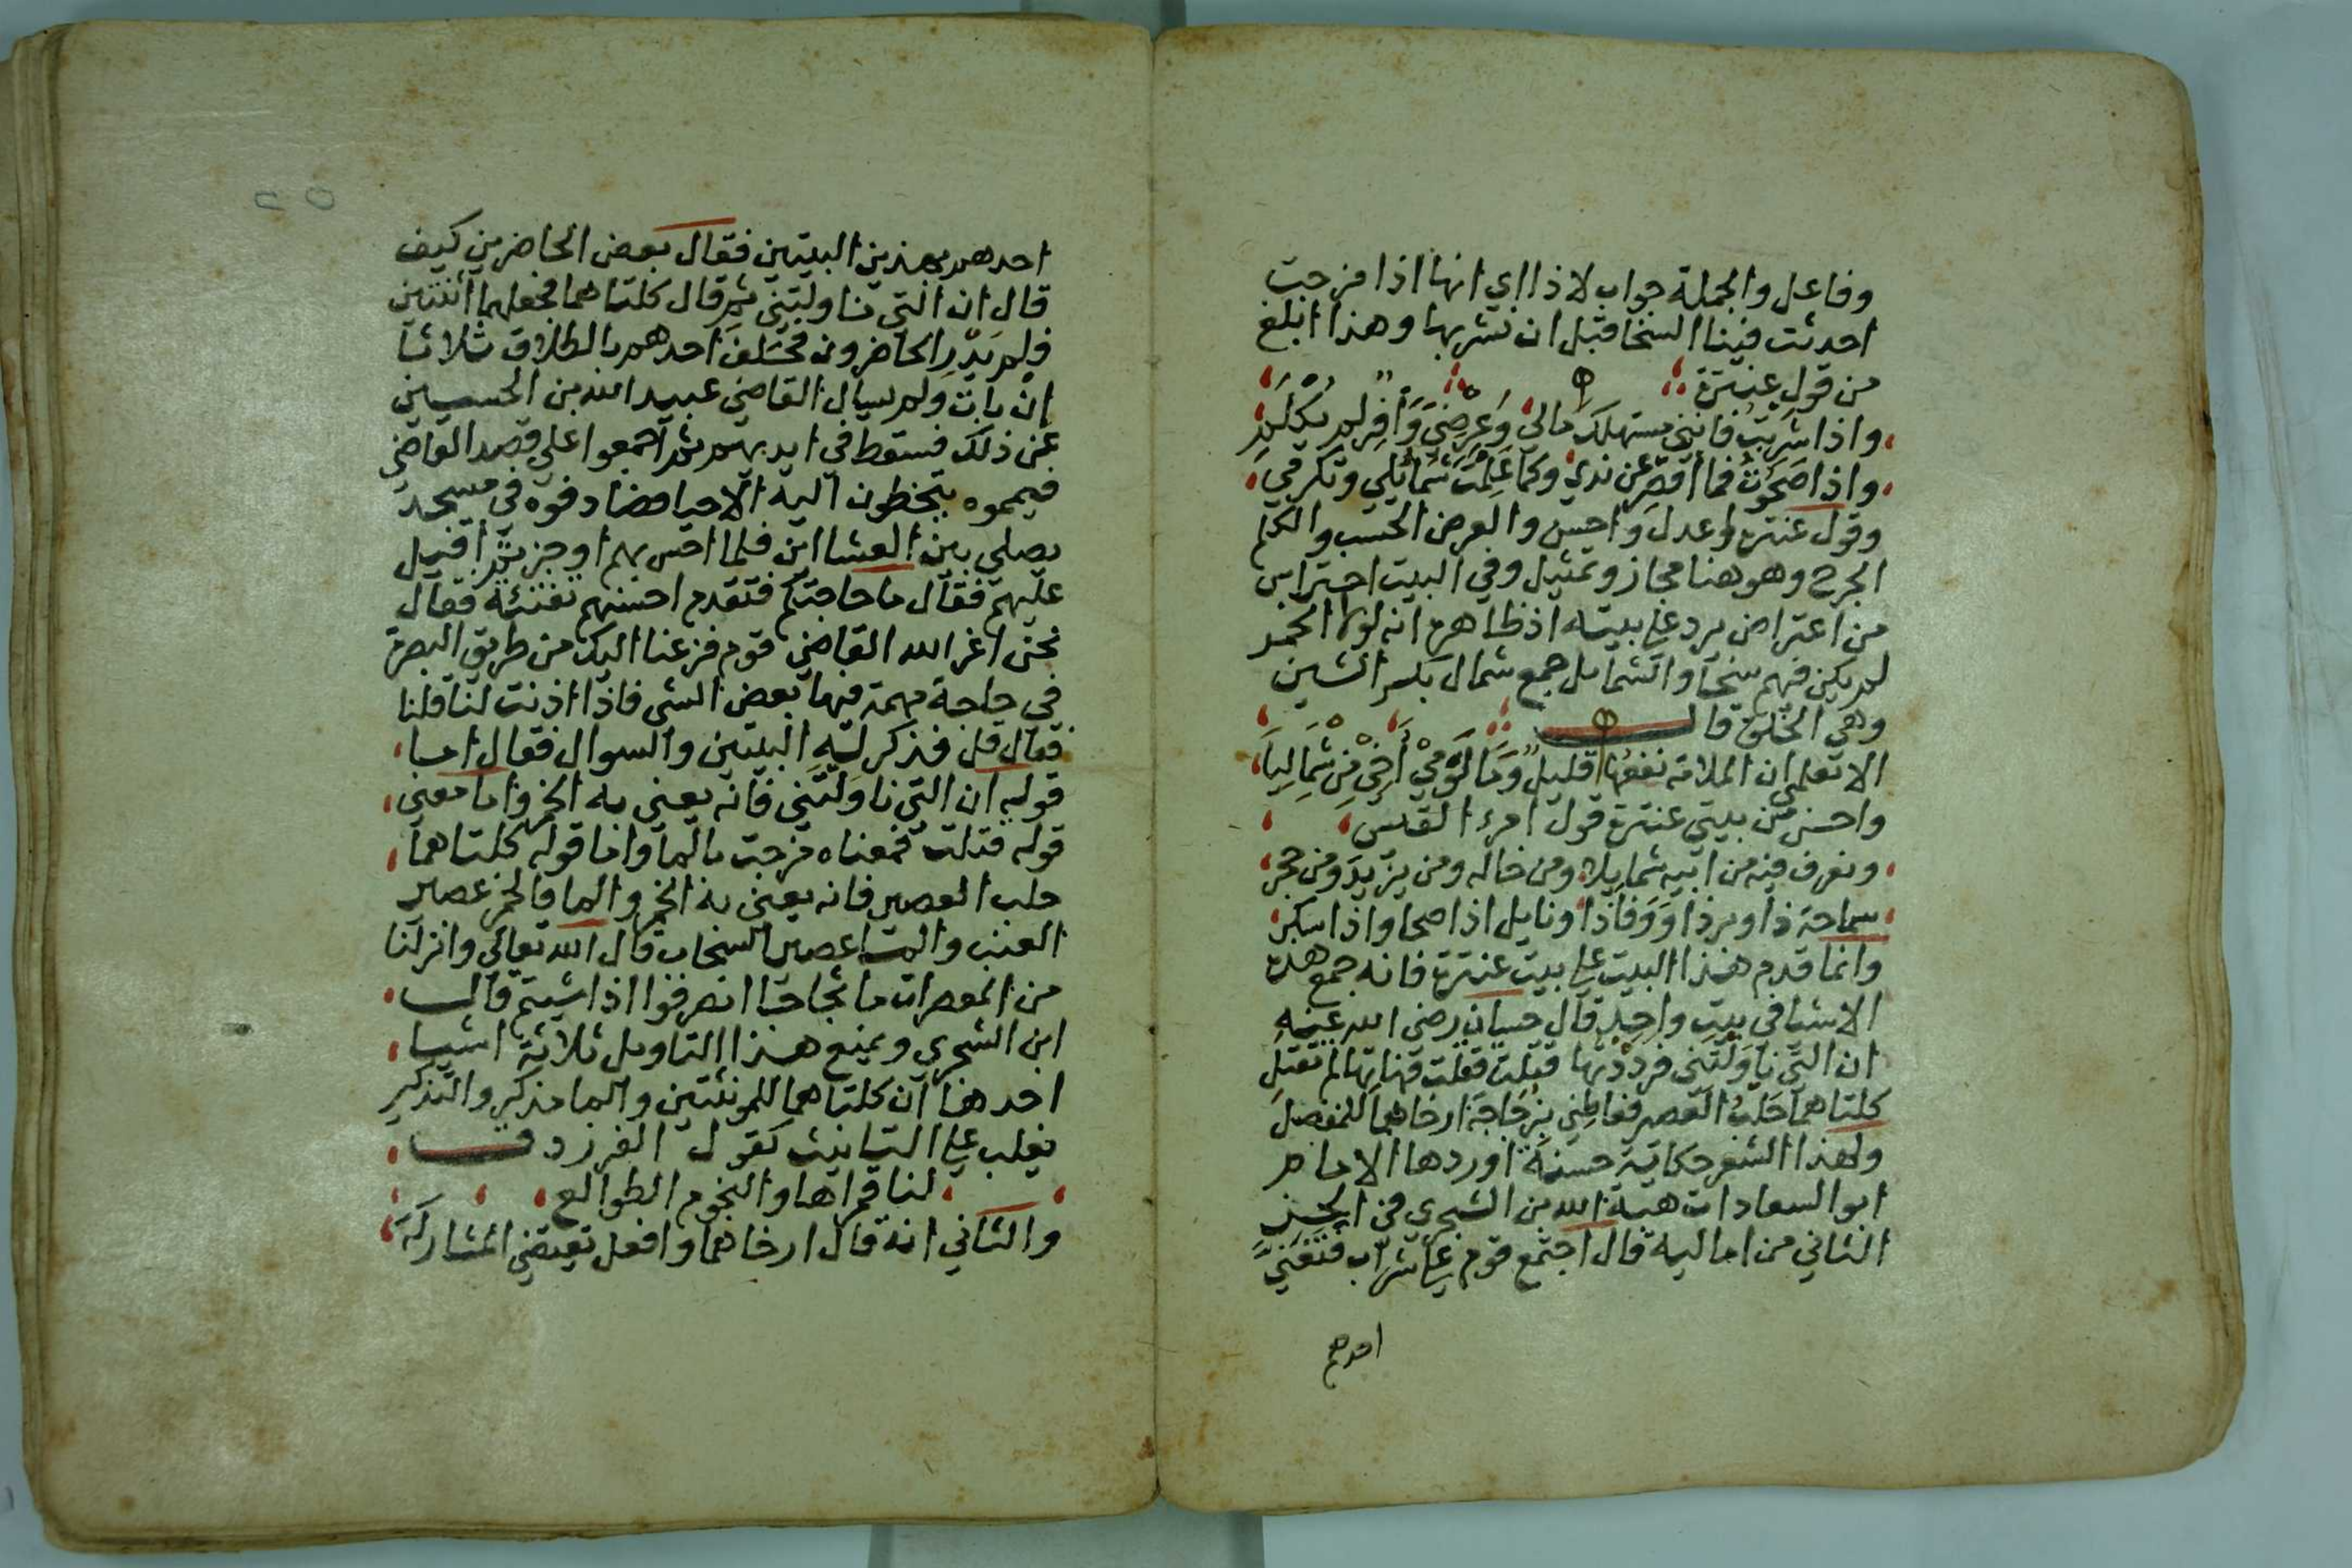 وفاعل والجملة جواب لاذا اي انها اذا مزجت
احدثت فينا السخا قبل ان نشربها وهذا ابلغ
من قول عنترة
واذا شربت فانني مستهلك مالي وعرضي وافر لم يكلم
واذا صحوت فما اقصر عن ندي وكما علمت شمائلي وتكرمي
وقول عنترة اعدل واحسن والعرض الحسب والكلم
الجرح وهو هنا مجاز وتمثيل وفي البيت احتراس
من اعتراض يرد علي بيته اذ ظاهره انه لولا الخمر
لم يكن فيهم سخا والشمايل جمع شمال بكسر الشين
وهي الخلق قال
الا تعلمي ان الملامة نفعها قليل وما لومي اخي من شماليا
واحسن من بيتي عنترة قول امرء القيس
ونعرف فيه من ابيه شمايلا ومن خاله ومن يزيد ومن حجر
سماحة ذا وبر ذا ووفا ذا ونايل اذا صحا واذا سكر
وانما قدم هذا البيت علي بيت عنترة فانه جمع هذه
الاشيا في بيت واحد قال حسان رضي الله عنه
ان التي ناولتني فرددتها قتلت قتلت فهاتها لم تقتل
كلتاهما حلب العصير فعاطني بزجاجة ارخاهما للمفصل
ولهذا الشعر حكاية حسنة اوردها الامام
ابو السعادات هبة الله بن الشجري في الجز
الثاني من اماليه قال اجتمع قوم علي شراب فتغني
احدهم
٢٥
احدهم بهذين البيتين فقال بعض الحاضرين كيف
قال ان التي ناولتني ثم قال كلتاهما فجعلهما اثنتين
فلم يدر الحاضرون فحلف احدهم بالطلاق ثلاثا
ان بات ولم يسال القاضي عبيد الله بن الحسين
عن ذلك فسقط في ايديهم ثم اجمعوا علي قصد القاضي
فيمموه يتخطون اليه الاحيا فصادفوه في مسجد
يصلي بين العشااين فلما احس بهم اوجز ثم اقبل
عليهم فقال ما حاجتكم فتقدم احسنهم نفثة فقال
نحن اعز الله القاضي قوم فزعنا اليك من طريق البصرة
في حاجة مهمة فيها بعض الشي فاذا اذنت لنا قلنا
فقال قل فذكر له البيتين والسوال فقال اما
قوله ان التي ناولتني فانه يعني به الخمر واما معني
قوله قتلت فمعناه مزجت بالما واما قوله كلتاهما
حلب العصير فانه يعني به الخمر والما فالخمر عصير
العنب والما عصير السحاب قال الله تعالي وانزلنا
من المعصرات ما ثجاجا انصرفوا اذا شيتم قال
ابن الشجري ويمنع هذا التاويل ثلاثة اشيا
احدها ان كلتاهما للمونثتين والما مذكر والتذكير
يغلب علي التانيث كقول الفرزدق
لنا قمراها والنجوم الطوالع
والثاني انه قال ارخاهما وافعل تقتضي المشاركة